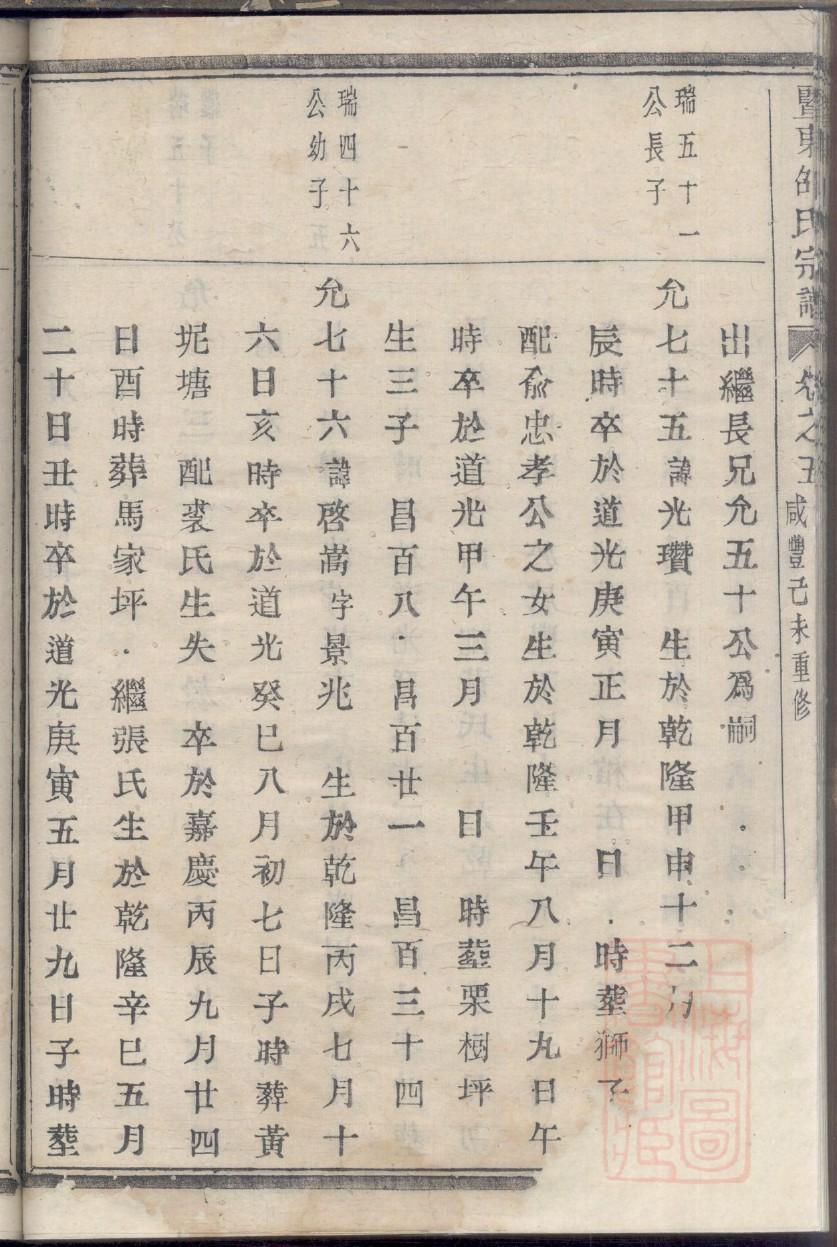 暨東邵氏宗譜 卷之五 咸豐己未重修
出繼長兄允五十公爲嗣
瑞五十一
公長子
允七十五諱光瓚 生於乾隆甲申十二月
辰時卒於道光庚寅正月 日 時塟獅子
配俞忠孝公之女生於乾隆壬午八月十九日午
時卒於道光甲午三月 日 時塟栗樹坪
生三子 昌百八 昌百廿一 昌百三十四
瑞四十六
公幼子
允七十六諱啓嵩字景兆 生於乾隆丙戌七月十
六日亥時卒於道光癸巳八月初七日子時葬黃
坭塘三 配裘氏生失 卒於嘉慶丙辰九月廿四
日酉時葬馬家坪 繼張氏生於乾隆辛巳五月
二十日丑時卒於道光庚寅五月廿九日子時塟
上海圖
書館藏